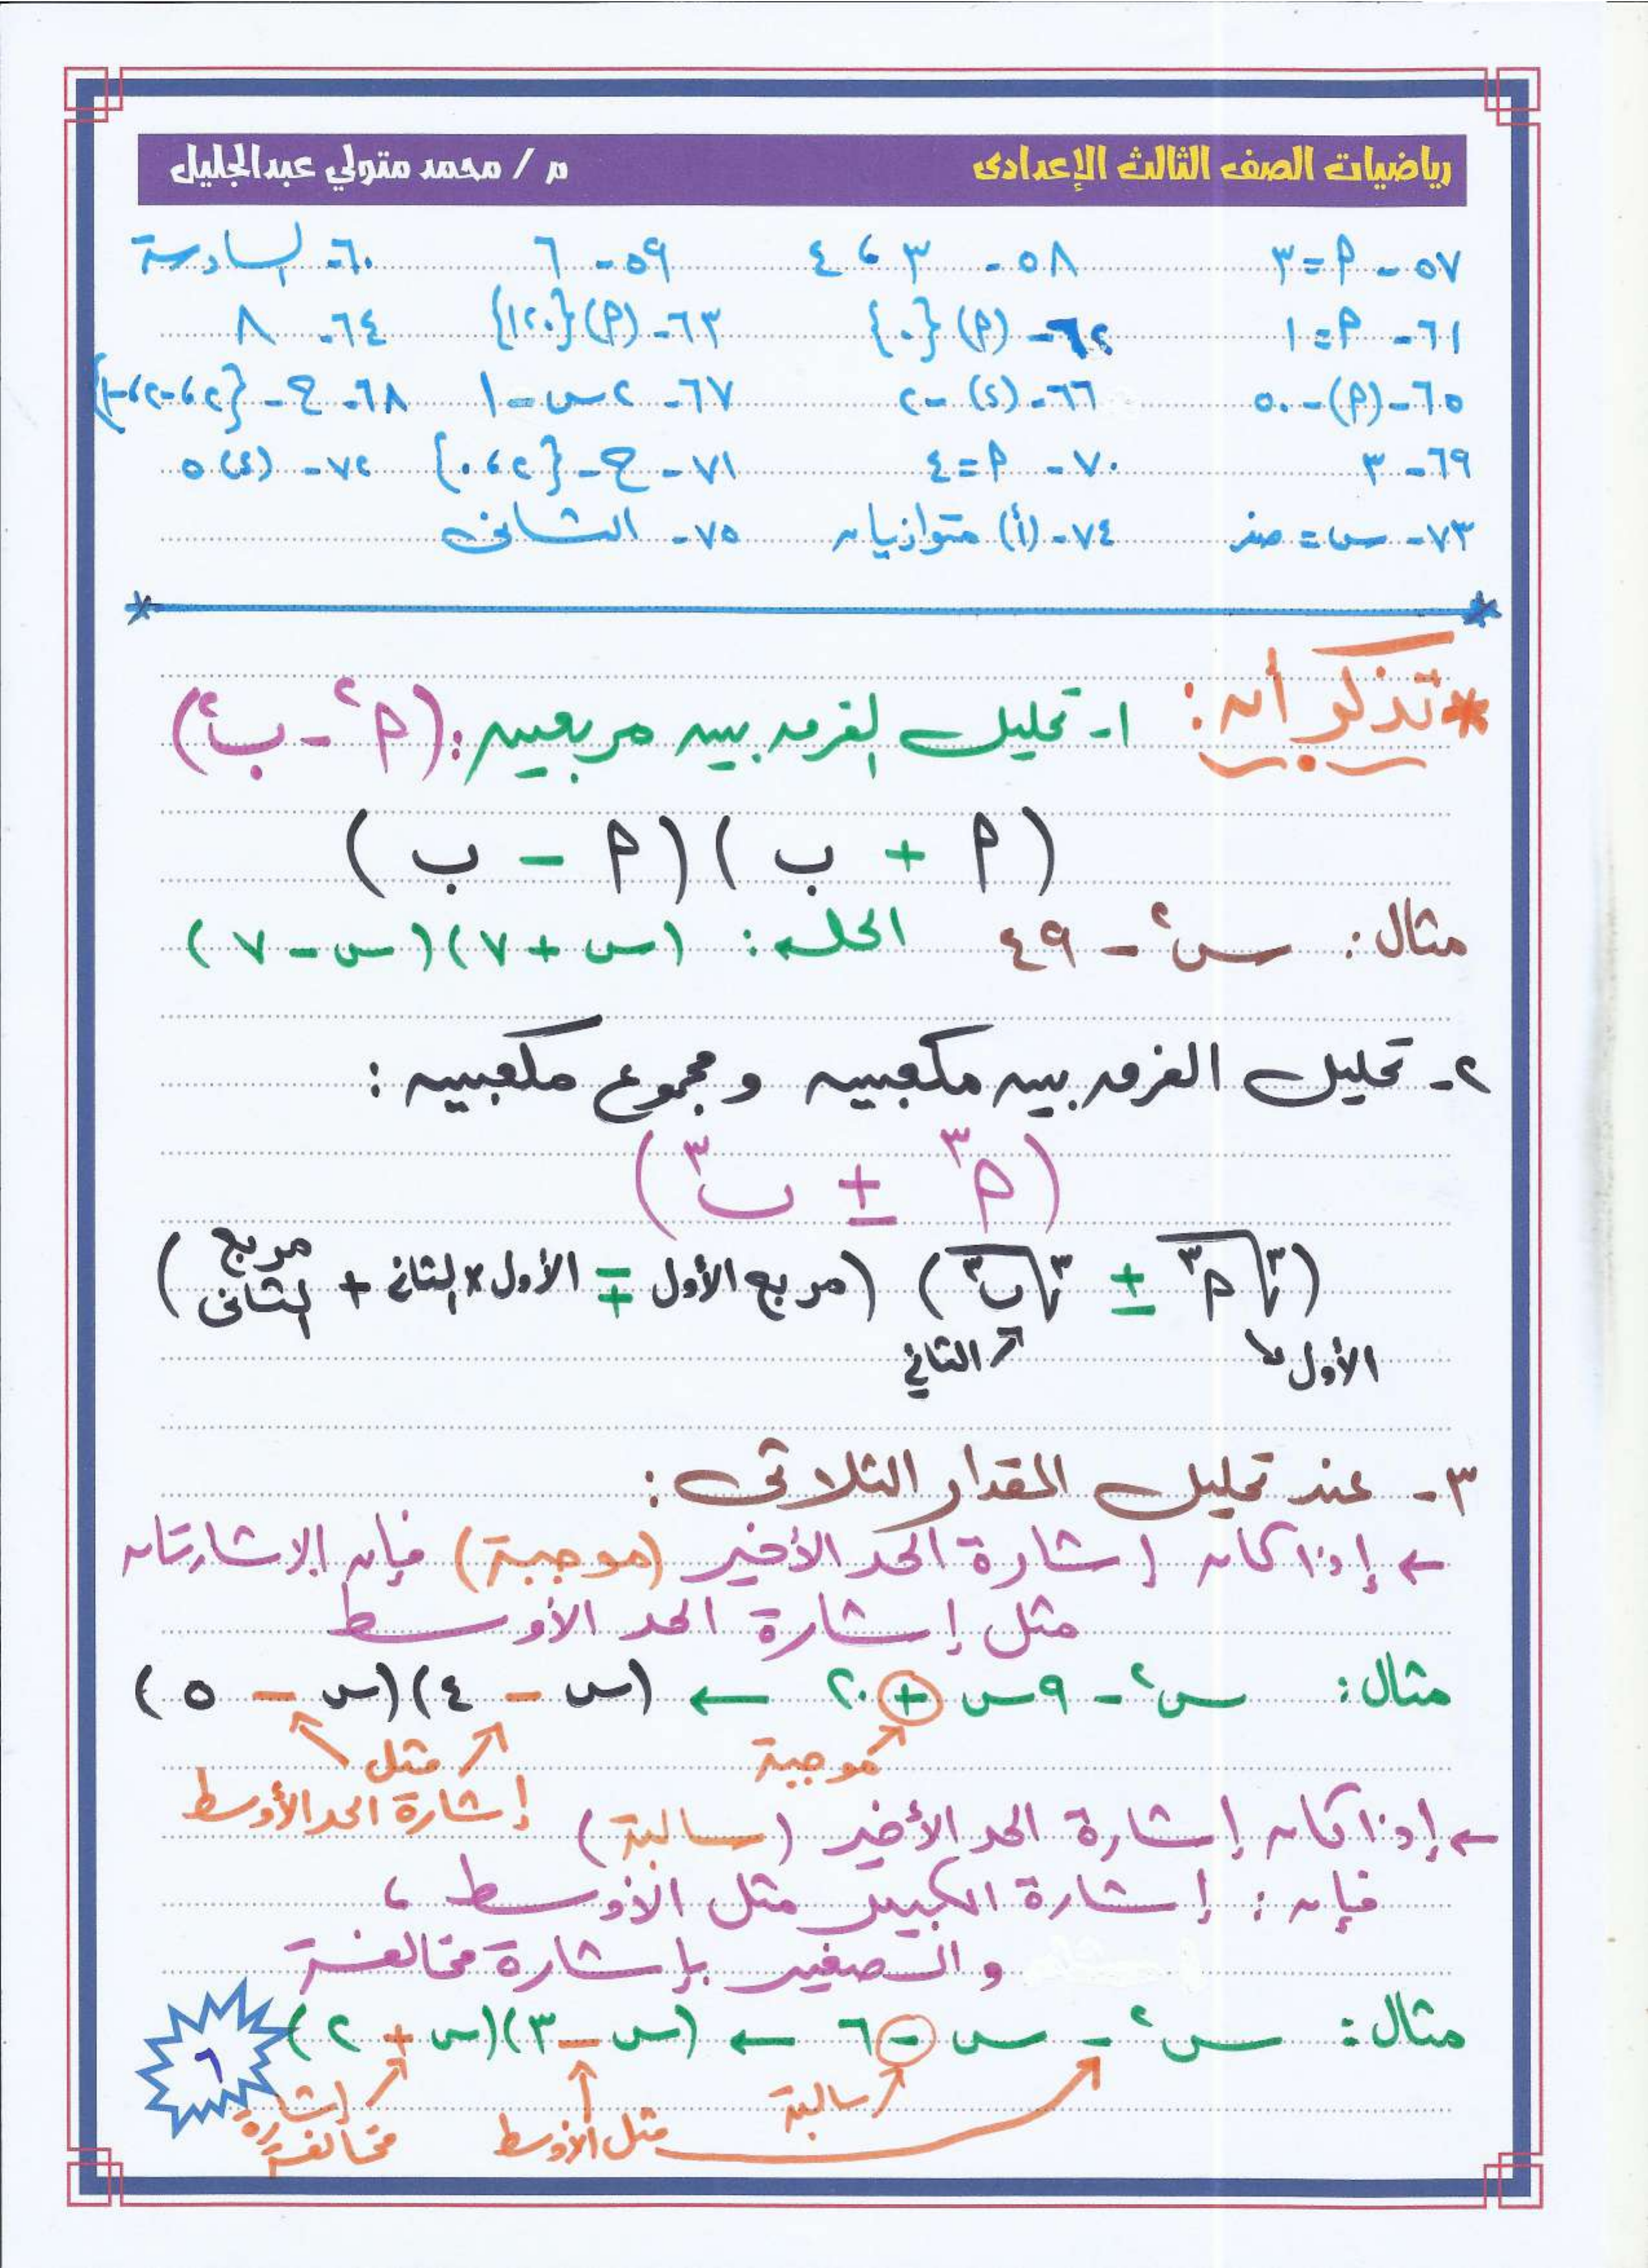 رياضيات الصف الثالث الإعدادى م / محمد متولي عبدالجليل
٥٧- م = ٣ ٥٨- ٣ ، ٤ ٥٩- ٦ ٦٠- السادسة
٦١- م = ١ ٦٢- (م) {٠} ٦٣- (م) {١٢٠} ٦٤- ٨
٦٥- (م) - ٥٠ ٦٦- (د) -٢ ٦٧- ٢س - ١ ٦٨- ح - {٢، -٢، -١}
٦٩- ٣ ٧٠- م = ٤ ٧١- ح - {٢، ٠} ٧٢- (ء) ٥
٧٣- س = صفر ٧٤- (أ) متوازيان ٧٥- الثانى
* تذكر أن : ١- تحليل الفرق بين مربعين : (م² - ب²)
(م + ب) (م - ب)
مثال : س² - ٤٩ الحل : (س + ٧)(س - ٧)
٢- تحليل الفرق بين مكعبين ومجموع مكعبين :
(م³ ± ب³)
(∛م³ ± ∛ب³) (مربع الأول ∓ الأول × الثانى + مربع الثانى)
الأول الثاني
٣- عند تحليل المقدار الثلاثى :
← إذا كان إشارة الحد الأخير (موجبة) فإن الإشارتان
مثل إشارة الحد الأوسط
مثال : س² - ٩س + ٢٠ ← (س - ٤)(س - ٥)
موجبة مثل
إشارة الحد الأوسط
← إذا كان إشارة الحد الأخير (سالبة)
فإن : إشارة الكبير مثل الأوسط ،
و الصغير بإشارة مخالفة
مثال : س² - س - ٦ ← (س - ٣)(س + ٢)
سالبة مثل الأوسط إشارة مخالفة
٦